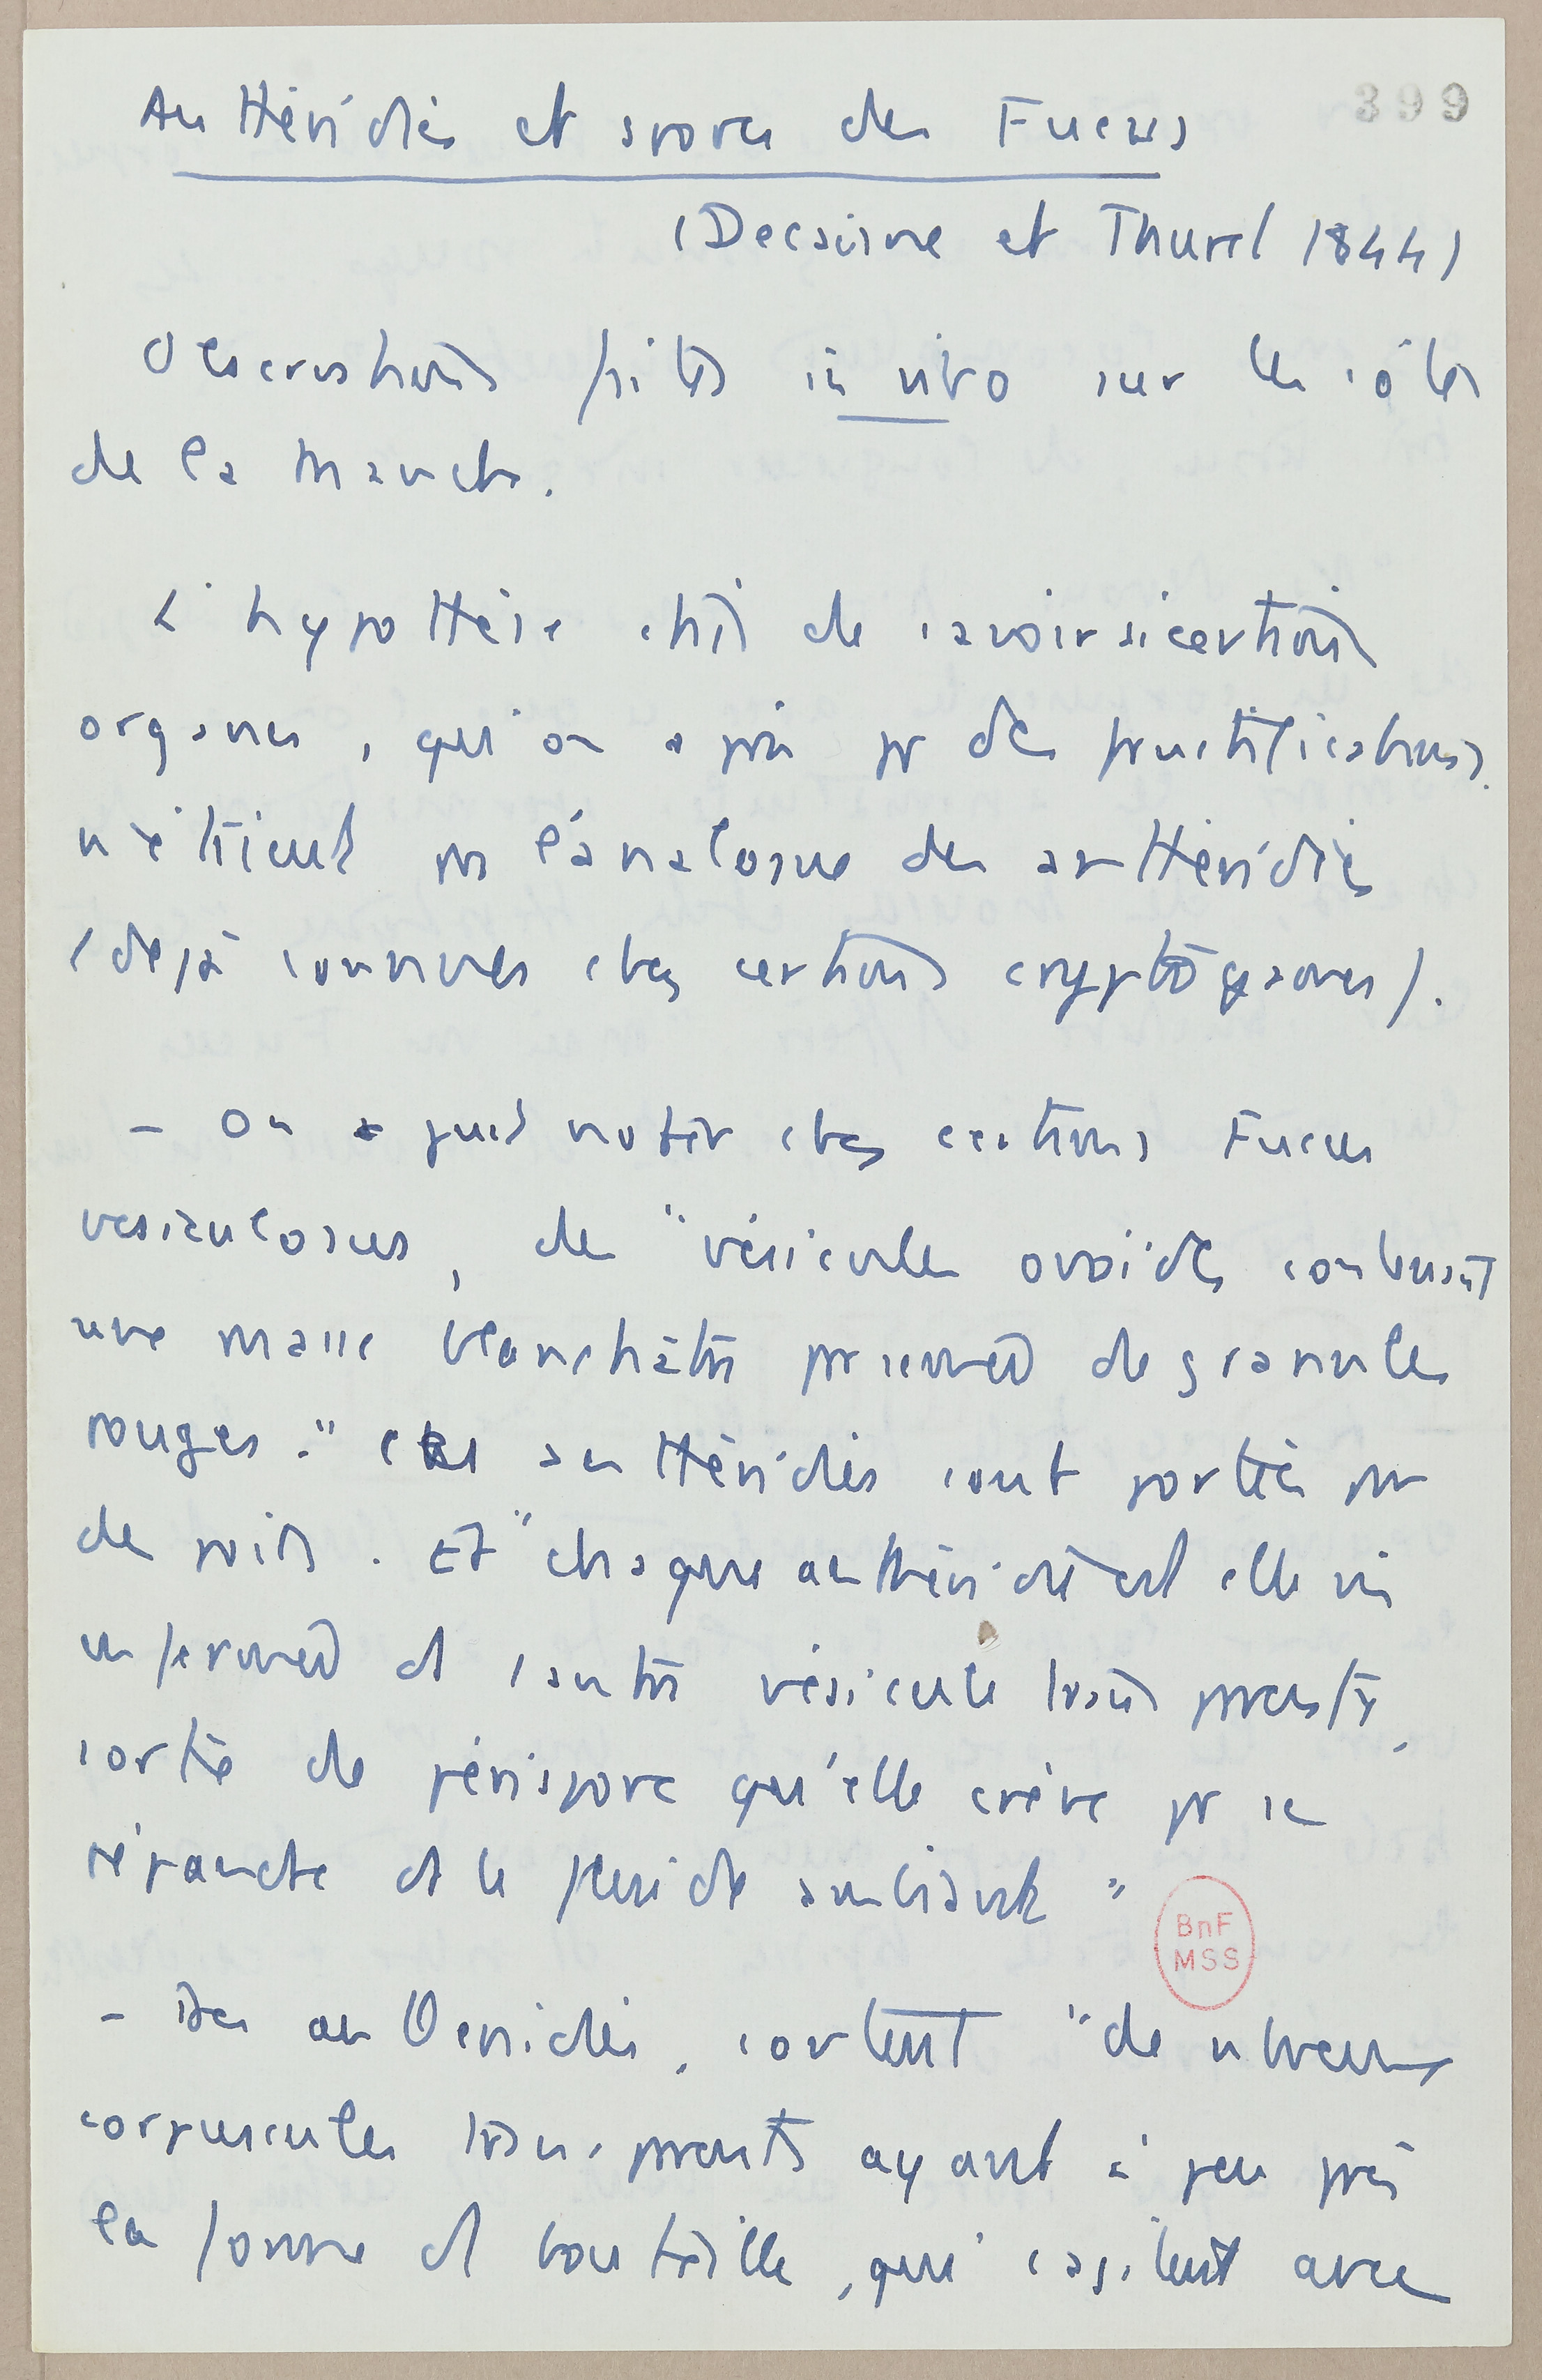 399
Anthéridies et spores des Fucus
(Decaisne et Thuret 1844)
Observations faites in vitro sur les côtes
de la Manche.
L'hypothèse était de savoir si certains
organes, qu'on a pris pr des fructifications,
n'étaient pas l'analogue des anthéridies
(déjà connues chez certains cryptogames).
- On a pu noter chez certains Fucus
vesiculosus, des "vésicules ovoïdes contenant
une masse blanchâtre parsemée de granules
rouges." Ces anthéridies sont portées par
des poils. Et "chaque anthéridie est elle même
enfermée ds 1 autre vésicule transparente,
sorte de périspore qu'elle crève pr se
répandre ds le fluide ambiant"
BnF
MSS
- Des anthéridies, sortent "de nbreux
corpuscules transparents ayant à peu près
la forme d bouteille, qui s'agitent avec